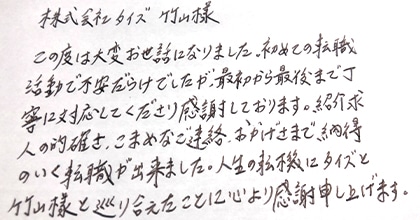 株式会社タイズ 竹山様
この度は大変お世話になりました。初めての転職
活動で不安だらけでしたが、最初から最後まで丁
寧に対応してくださり感謝しております。紹介求
人の的確さ、こまめなご連絡、おかげさまで納得
のいく転職が出来ました。人生の転機にタイズと
竹山様と巡り合えたことに心より感謝申し上げます。